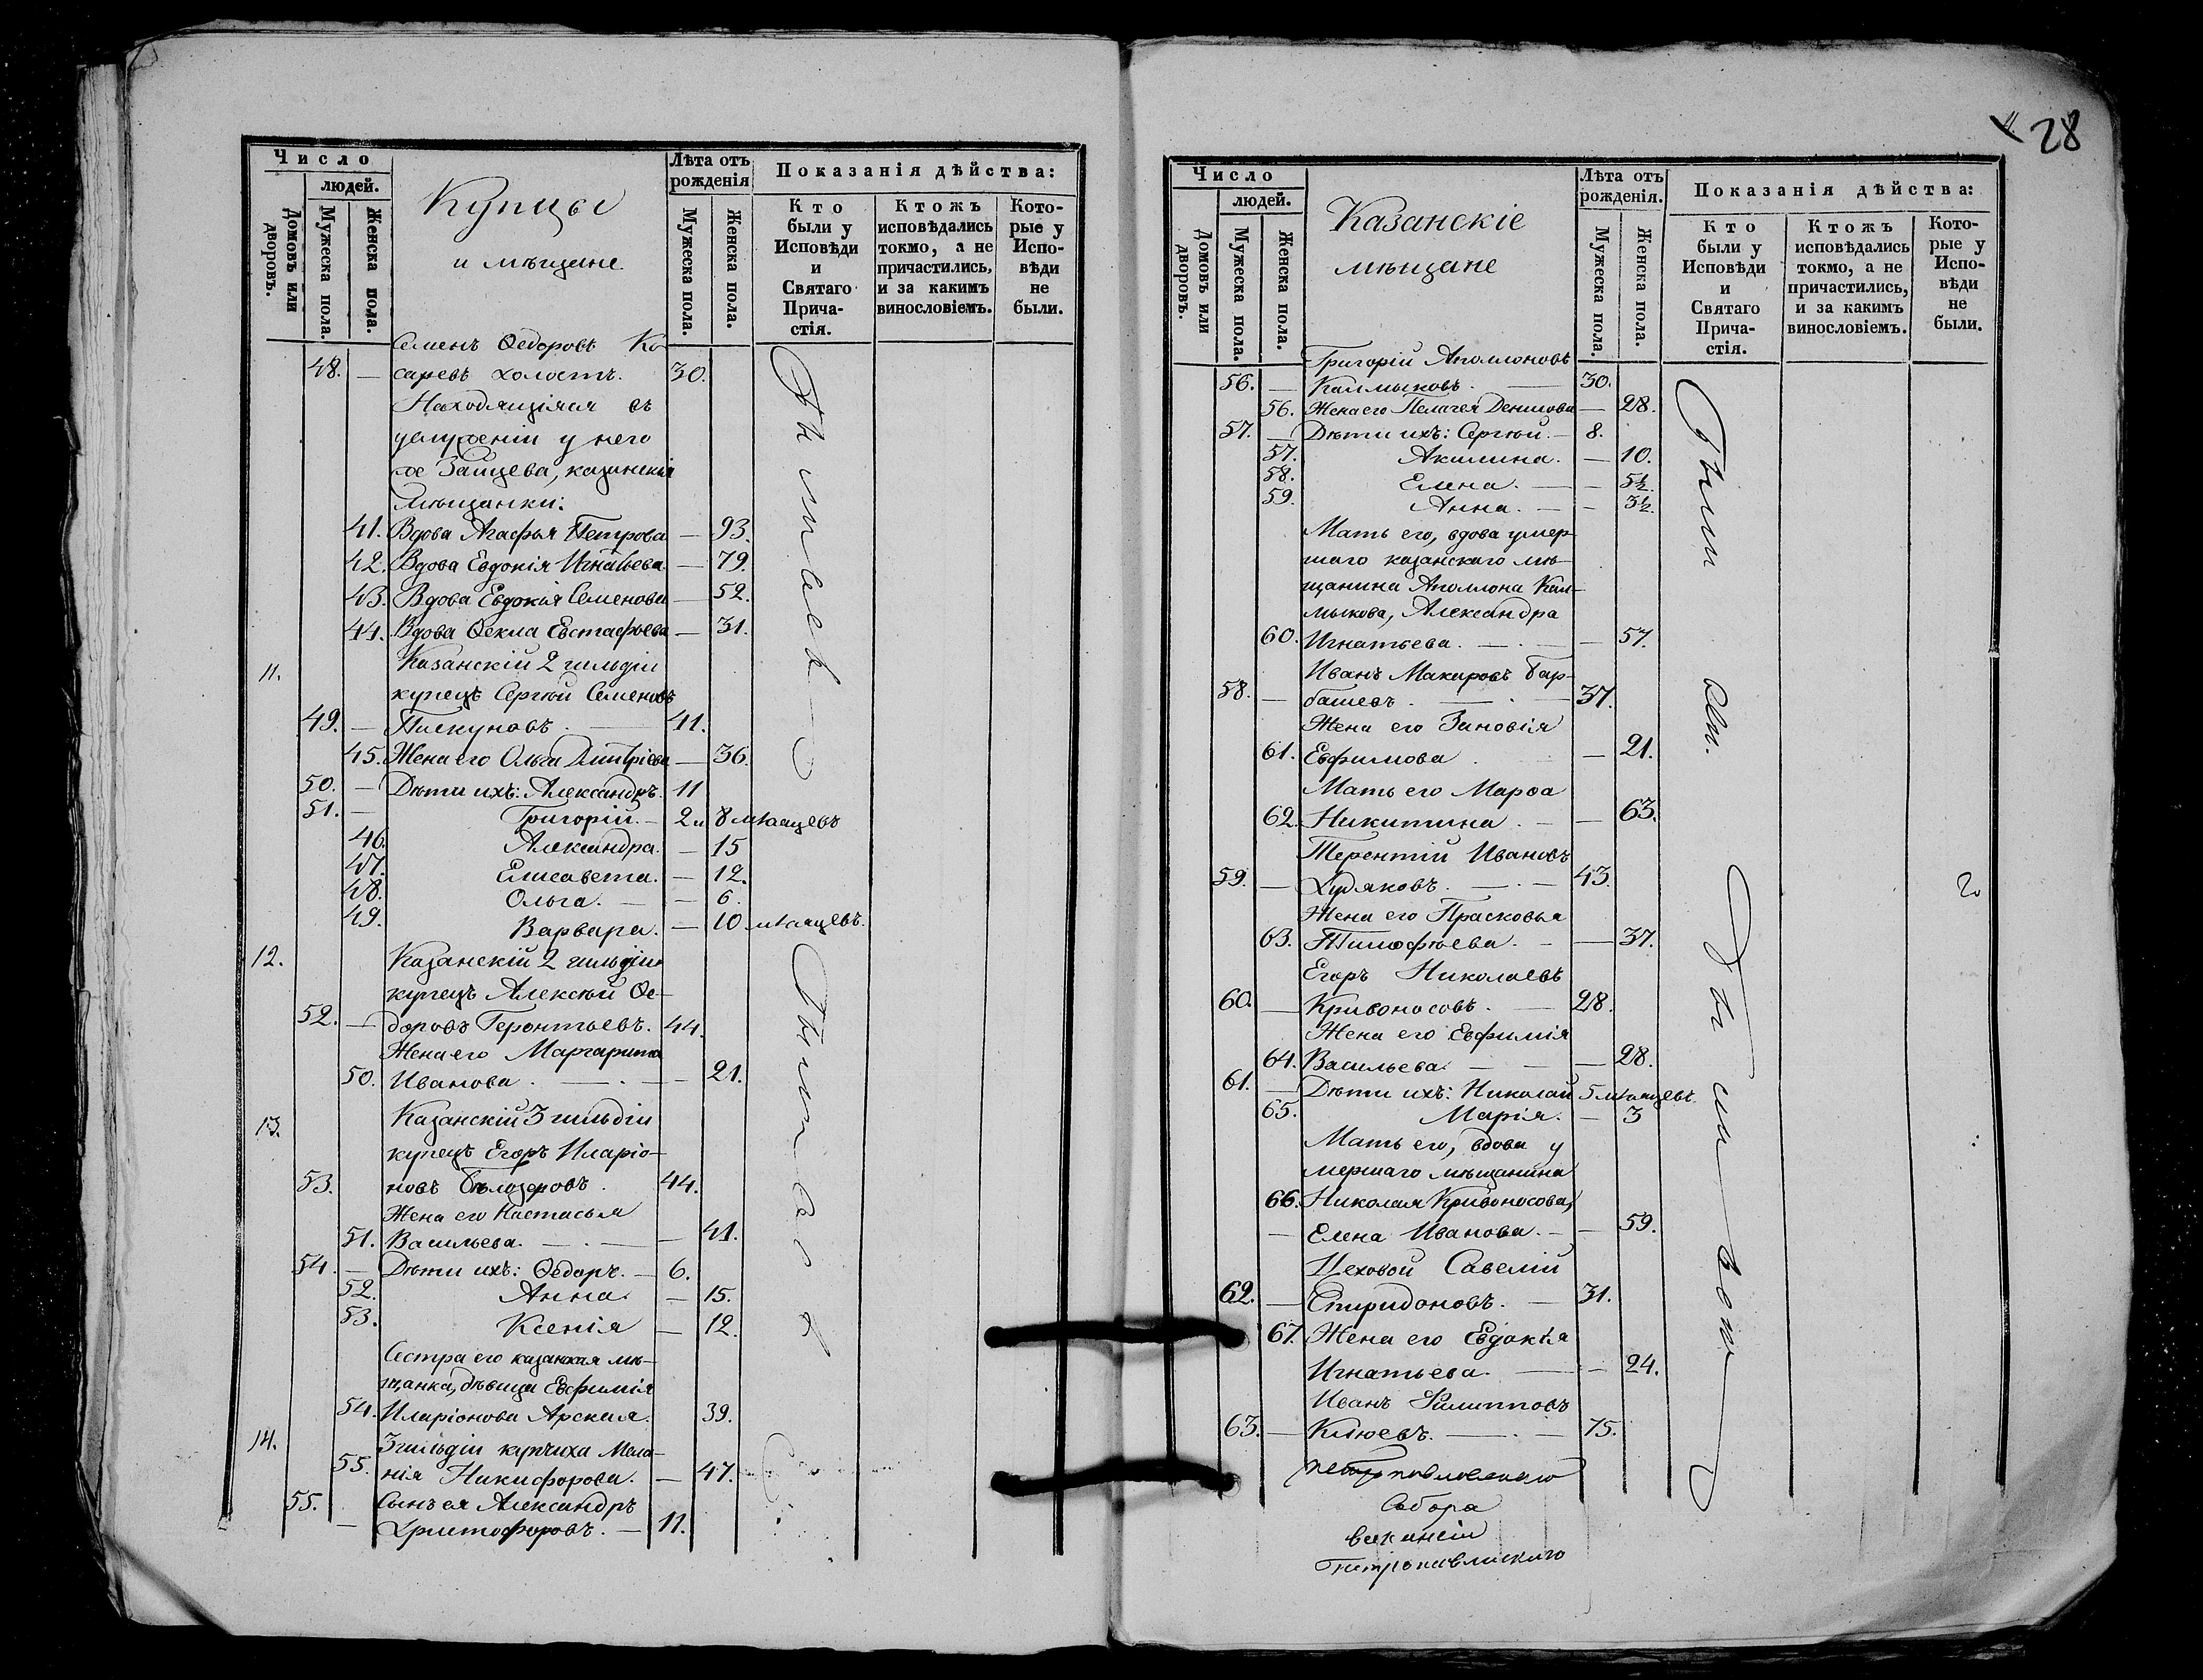 Число
людей.
Домовъ или дворовъ.
Мужеска пола.
Женска пола.
Купцы
и мѣщане
Лѣта отъ рожденія
Мужеска пола.
Женска пола.
Показанія дѣйства:
Кто были у Исповѣди и Святаго Прича-стія.
Ктожъ исповѣдались токмо, а не причастились, и за какимъ винословіемъ.
Кото-рые у Испо-вѣди не были.
Семенъ Ѳедоровъ Ко-
48. — саревъ холостъ. 30.
Находящіяся въ
услуженіи у него
же Зайцева, казанскія
мѣщанки:
41. Вдова Агафья Петрова — 93.
42. Вдова Евдокія Игнатьева — 79.
43. Вдова Евдокія Семенова — 52.
44. Вдова Ѳекла Евстафьева — 31.
11. Казанскій 2 гильдіи
купецъ Сергѣй Семеновъ
49. — Пискуновъ. — 41.
45. Жена его Ольга Дмитріева — 36.
50. — Дѣти ихъ: Александръ. 11
51. — Григорій. — 2 и 8 мѣсяцевъ
46. Александра. — 15
47. Елисавета. — 12.
48. Ольга. — 6.
49. Варвара. — 10 мѣсяцевъ.
12. Казанскій 2 гильдіи
купецъ Алексѣй Ѳе-
52. — доровъ Геронтьевъ. 44.
Жена его Маргарита
50. Иванова. — 21.
13. Казанскій 3 гильдіи
купецъ Егоръ Иларіо-
53. новъ Бѣлозеровъ. 44.
Жена его Настасья
51. Васильева. — 41.
54. — Дѣти ихъ: Ѳедоръ. — 6.
52. Анна. — 15.
53. Ксенія — 12.
Сестра его казанская мѣ-
щанка, дѣвица Евфимія
54. Иларіонова Арская. 39.
14. 3 гильдіи купчиха Мела-
55. нія Никифорова. — 47.
55. Сынъ ея Александръ
— Христофоровъ. — 11.
28
Число
людей.
Домовъ или дворовъ.
Мужеска пола.
Женска пола.
Казанскіе
мѣщане
Лѣта отъ рожденія.
Мужеска пола.
Женска пола.
Показанія дѣйства:
Кто были у Исповѣди и Святаго Прича-стія.
Ктожъ исповѣдались токмо, а не причастились, и за какимъ винословіемъ.
Кото-рые у Испо-вѣди не были.
Григорій Аполлоновъ
56. — Калмыковъ. — 30.
56. Жена его Пелагея Денисова — 28.
57. — Дѣти ихъ: Сергѣй. — 8.
57. Акилина. — 10.
58. Елена. — 5½.
59. Анна. — 3½.
Мать его, вдова умер-
шаго казанскаго мѣ-
щанина Аполлона Кал-
мыкова, Александра
60. Игнатьева. — 57.
Иванъ Макаровъ Бар-
58. — башевъ. — 37.
Жена его Зиновія
61. Евфимова — 21.
Мать его Марѳа
62. Никитина. — 63.
Терентій Ивановъ
59. — Худяковъ. — 43.
Жена его Прасковья
63. Тимофѣева. — 37.
Егоръ Николаевъ
60. — Кривоносовъ. — 28.
Жена его Евфимія
64. Васильева. — 28.
61. — Дѣти ихъ: Николай 5 мѣсяцевъ.
65. Марія. — 3
Мать его, вдова у
мершаго мѣщанина
66. Николая Кривоносова,
— Елена Иванова. — 59.
Цеховой Савелій
62. — Спиридоновъ. — 31.
67. Жена его Евдокія
Игнатьева. — 24.
Иванъ Филипповъ
63. — Клюевъ. — 75.
Петропавловскаго
Собора
Петропавловскаго
Были